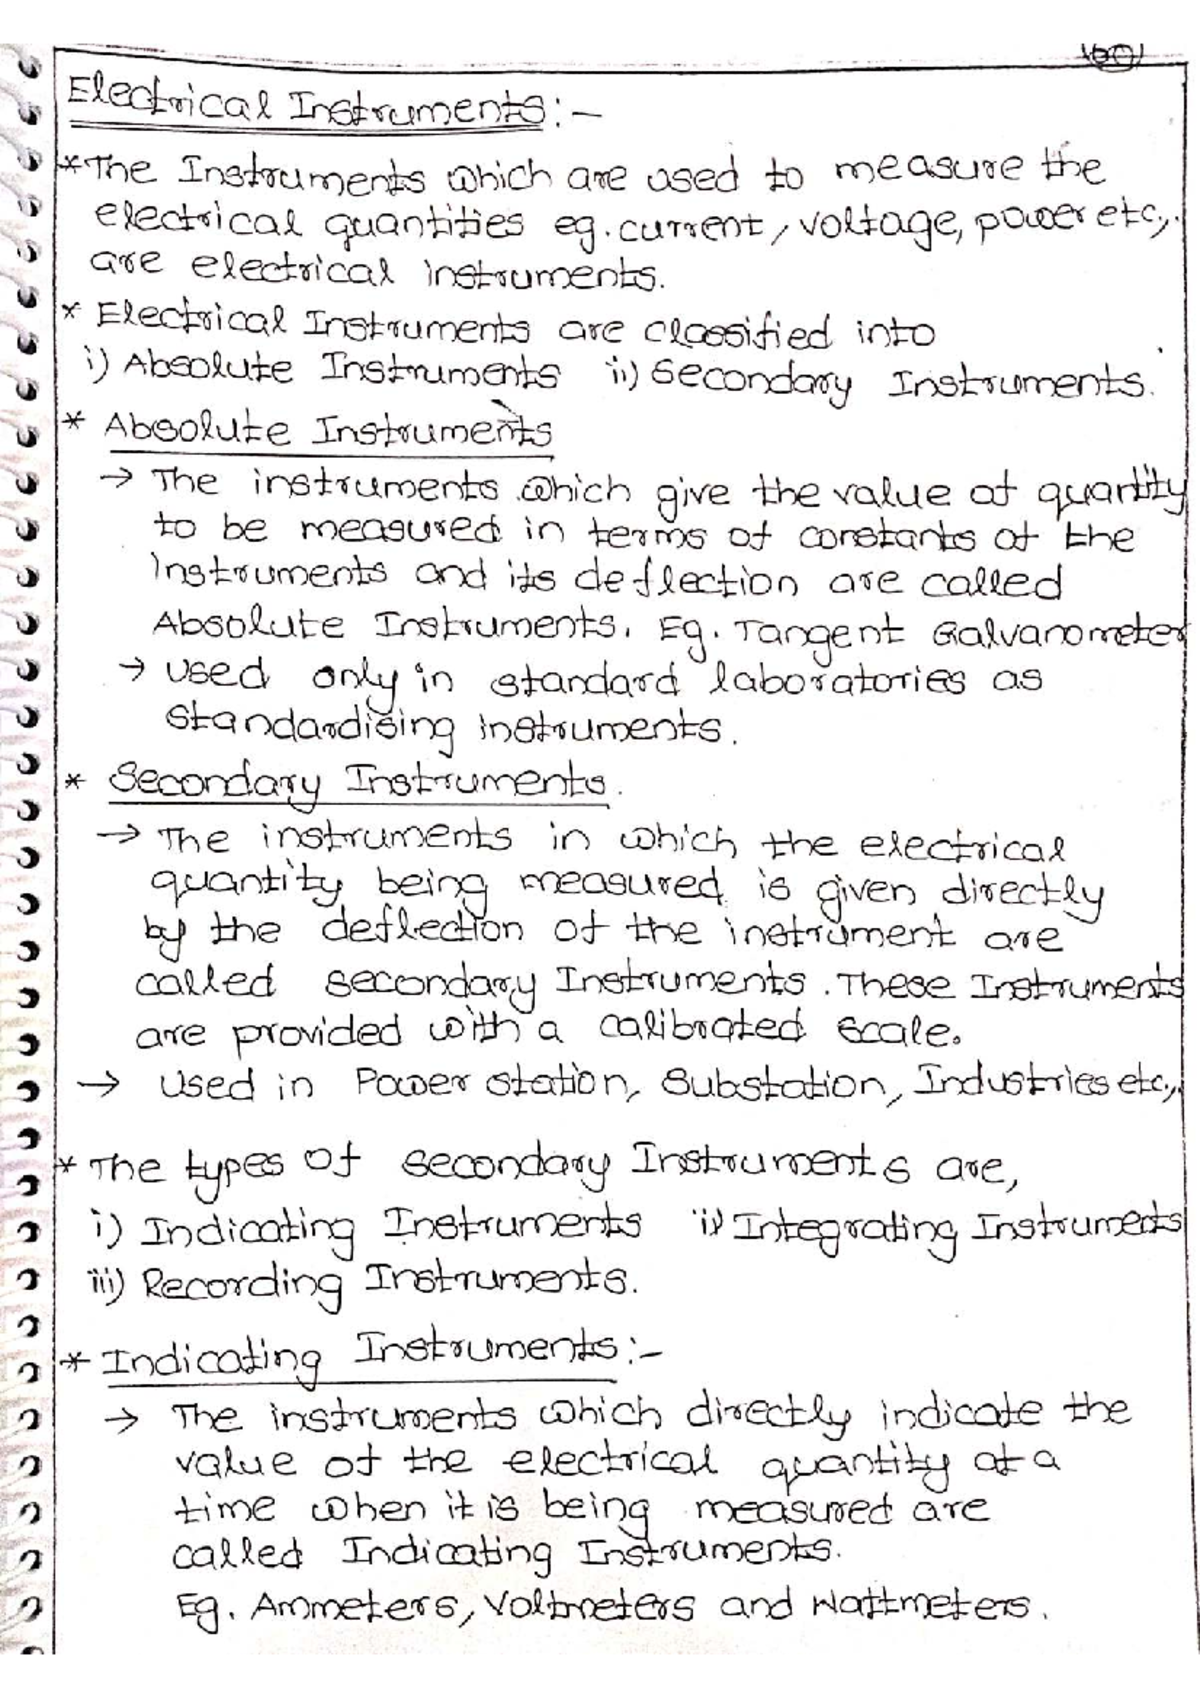 Electrical Instruments:-
* The Instruments which are used to measure the
electrical quantities eg. current, voltage, power etc.,
are electrical instruments.
* Electrical Instruments are classified into
i) Absolute Instruments ii) Secondary Instruments.
* Absolute Instruments
→ The instruments which give the value of quantity
to be measured in terms of constants of the
Instruments and its deflection are called
Absolute Instruments. Eg. Tangent Galvanometer
→ Used only in standard laboratories as
standardising instruments.
* Secondary Instruments.
→ The instruments in which the electrical
quantity being measured is given directly
by the deflection of the instrument are
called secondary Instruments. These Instruments
are provided with a calibrated scale.
→ Used in Power station, Substation, Industries etc.,
* The types of secondary Instruments are,
i) Indicating Instruments ii) Integrating Instruments
iii) Recording Instruments.
* Indicating Instruments:-
→ The instruments which directly indicate the
value of the electrical quantity at a
time when it is being measured are
called Indicating Instruments.
Eg. Ammeters, Voltmeters and Wattmeters.